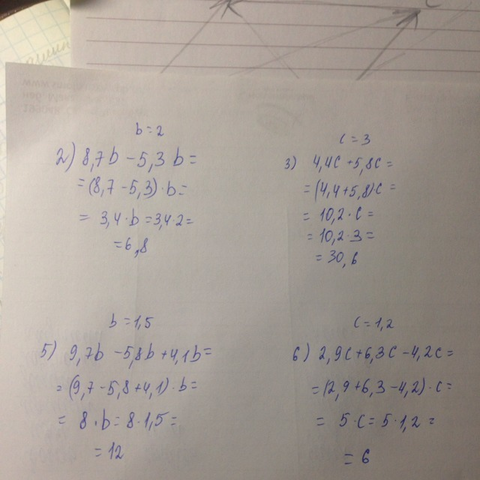 b=2
2) 8,7b-5,3b=
=(8,7-5,3)·b=
= 3,4·b=3,4·2=
=6,8
c=3
3) 4,4c+5,8c=
=(4,4+5,8)c=
= 10,2·c=
= 10,2·3=
= 30,6
b=1,5
5) 9,7b-5,8b+4,1b=
=(9,7-5,8+4,1)·b=
= 8·b=8·1,5=
=12
c=1,2
6) 2,9c+6,3c-4,2c=
=(2,9+6,3-4,2)·c=
= 5·c=5·1,2=
= 6